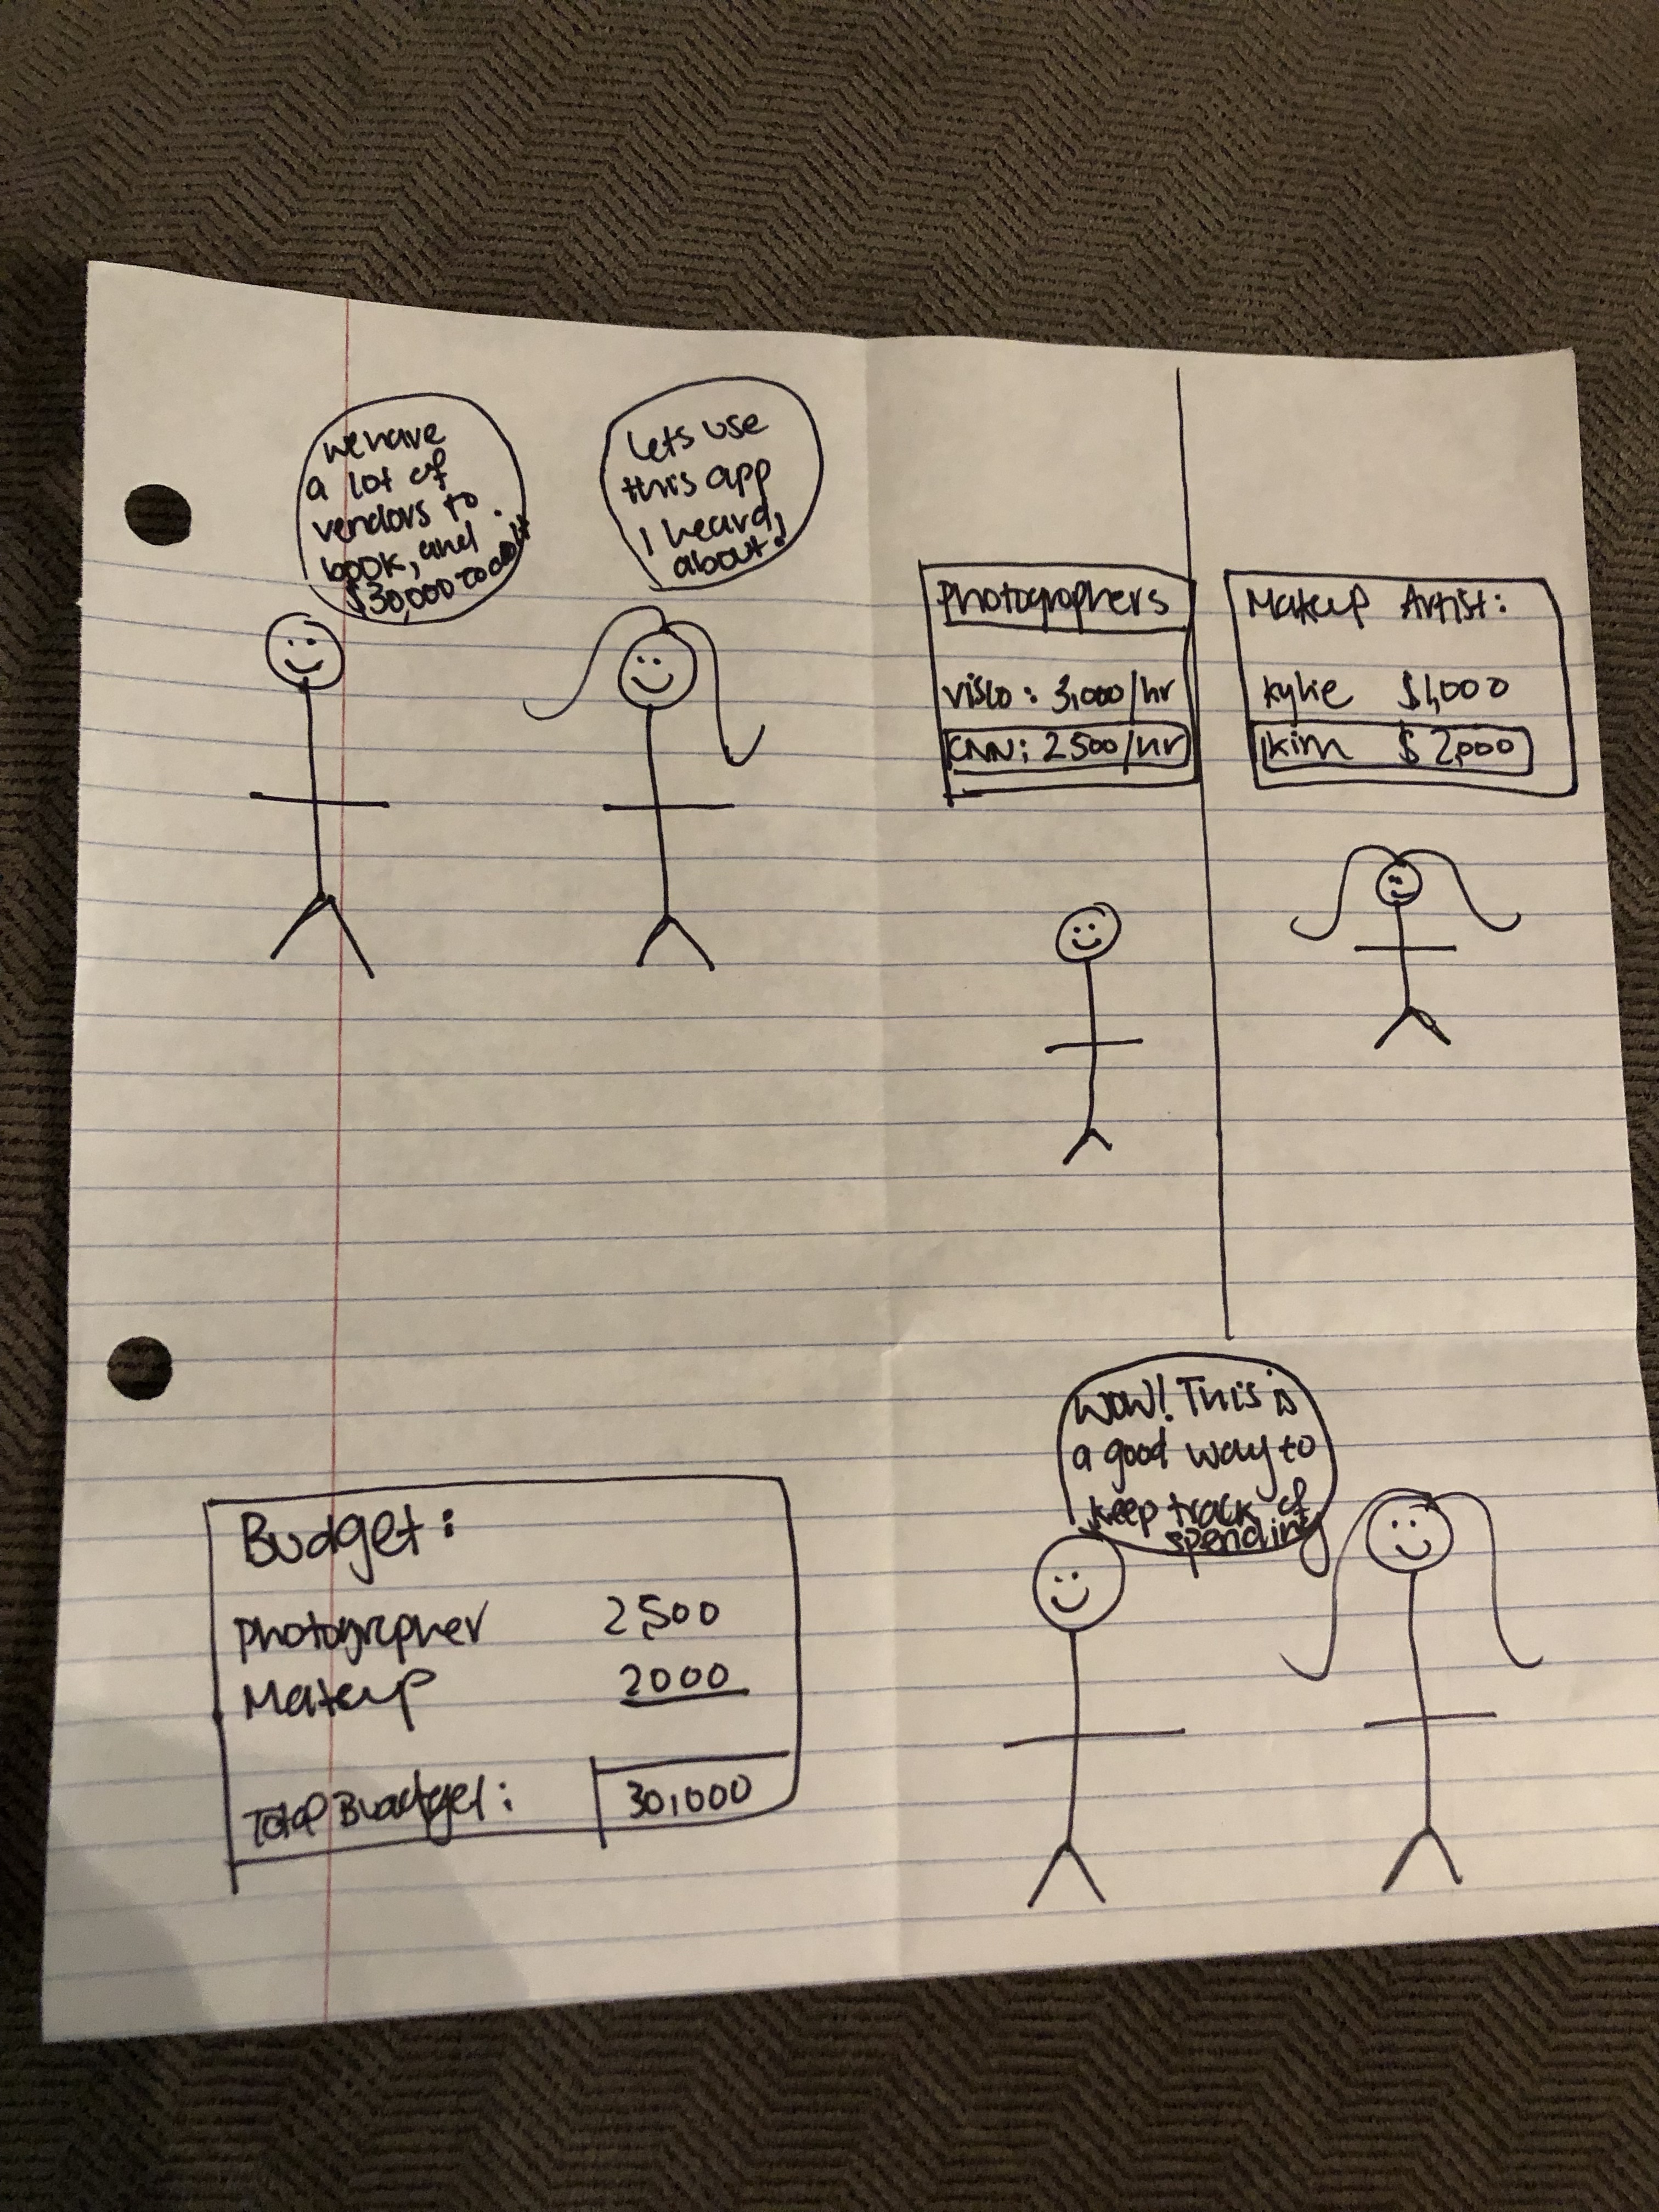 we have
a lot of
vendors to
book, and
$30,000 to do it.
Lets use
this app
I heard
about!
Photographers
Visco: 3,000/hr
CNN: 2500/hr
Makeup Artist:
Kylie $1,000
Kim $2,000
Budget:
Photographer 2,500
Makeup 2000
Total Budget: 30,000
Wow! This is
a good way to
keep track of
spending